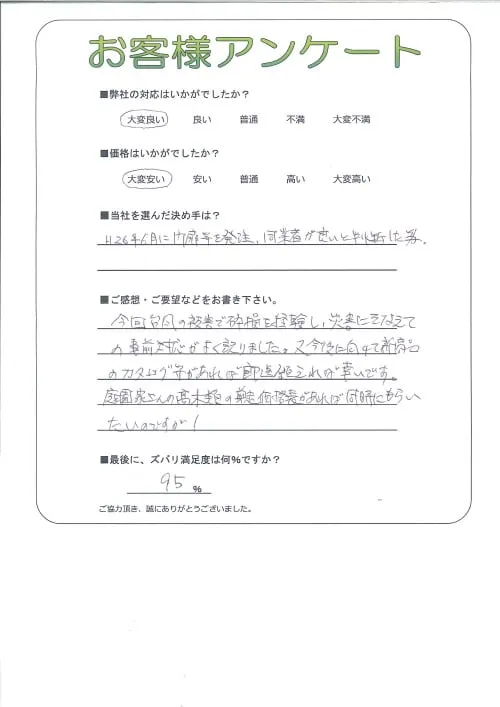 お客様アンケート
■弊社の対応はいかがでしたか?
大変良い 良い 普通 不満 大変不満
■価格はいかがでしたか?
大変安い 安い 普通 高い 大変高い
■当社を選んだ決め手は?
H26年6月に門扉等を発注、同業者が良いと判断した為。
■ご感想・ご要望などをお書き下さい。
今回台風の被害で破損を経験し、災害にそなえて
の事前対応がよく認りました。又今後に向けて新商品
のカタログ等があれば郵送頂ければ幸いです。
庭園 の高木 の 価格表があれば同時にもらい
たいのですが!
■最後に、ズバリ満足度は何%ですか?
95 %
ご協力頂き、誠にありがとうございました。